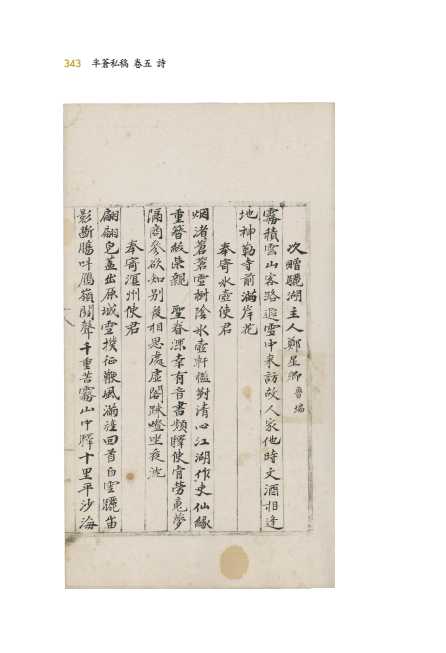 343 半蒼私稿 卷五 詩
次贈驪湖主人鄭星卿 魯瑞
霧積雲山客路遐雪中來訪故人家他時文酒相逢
地神勒寺前滿岸花
奉寄氷壺使君
烟渚蒼茫雪樹陰氷壺軒檻對清心江湖作吏仙緣
重簪紱榮親 聖眷深幸有音書頻驛使肯勞魂夢
隔商參欲知別後相思處虛閣踈燈坐夜沈
奉寄 州使君
翩翩皂盖出 城雪撲征鞭風滿旌回首白雲驪
影斷膓 鴈嶺關聲千重苦霧山中驛十里平沙海